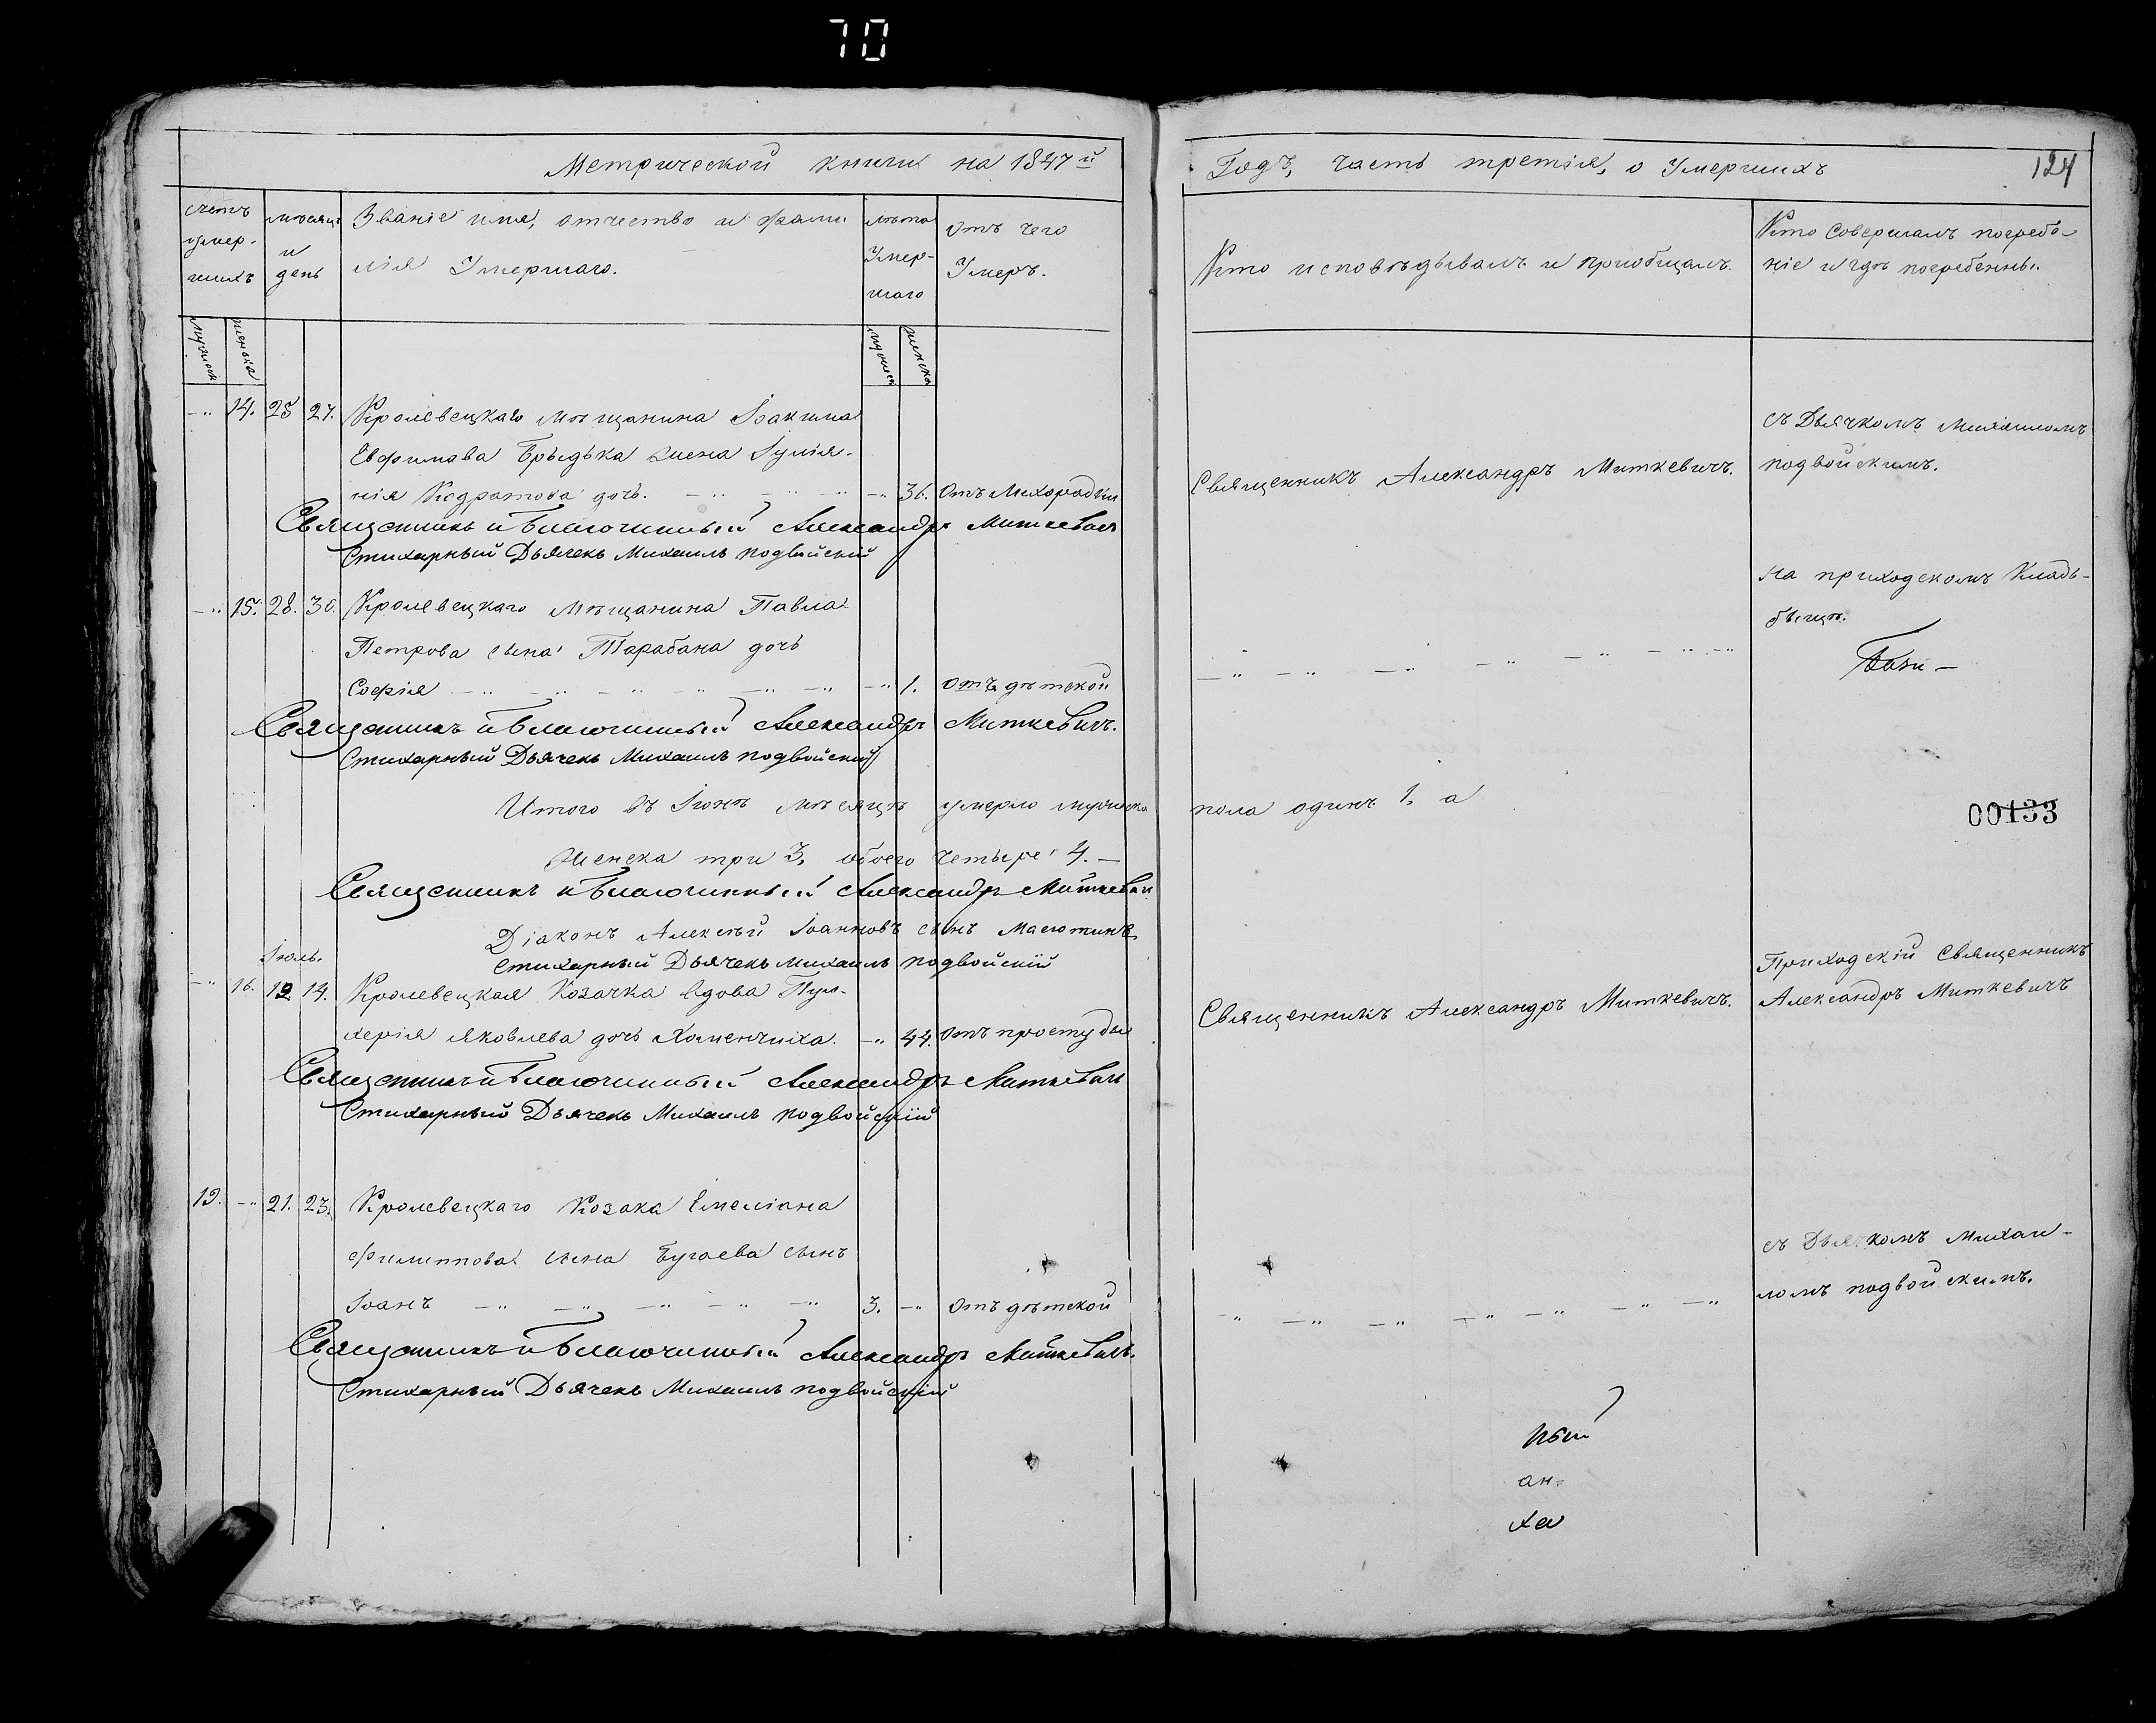 70
Метрической книги на 1847й
Годъ, часть третія, о Умершихъ
124
счетъ умер-шихъ
мѣсяцъ и день
Званіе имя, отчество и фами-
лія Умершаго.
лѣта Умер-шаго
отъ чего
Умеръ.
Кто исповѣдывалъ и пріобщалъ.
Кто совершалъ погребе-
ніе и гдѣ погребенны.
14. 25 27. Кролевецкаго мѣщанина Іоакима
Евфимова Брыдька жена Іулія-
нія Кодратова дочь. 36. отъ лихорадки
Священникъ Александръ Миткевичъ.
съ Дьячкомъ Михаиломъ
подвойскимъ.
Священникъ и Благочинный Александръ Миткевичъ
Стихарный Дьячекъ Михаилъ подвойский
на приходскомъ Кладь-
быщѣ.
15. 28. 30. Кролевецкаго Мѣщанина Павла
Петрова сына Тарабана дочь
Софія 1. отъ дѣтской
Священникъ и Благочинный Александръ Миткевичъ.
Стихарный Дьячекъ Михаилъ подвойский
Итого въ Іюнѣ мѣсяцѣ умерло мужеска
пола одинъ 1. а
00133
Женска три 3, обоего четыре 4.
Священникъ и Благочинный Александръ Миткевичъ
Діаконъ Алексѣй Іоанновъ сынъ
Стихарный Дьячекъ Михаилъ подвойскій
Іюль.
16. 12. 14. Кролевецкая Козачка вдова Пуль-
херія Яковлева дочь Хоменчиха. 44. отъ простуды
Священникъ Александръ Миткевичъ.
Приходскій Священникъ
Александръ Миткевичъ
Священникъ и Благочинный Александръ Миткевичъ
Стихарный Дьячекъ Михаилъ подвойскій
19. 21. 23. Кролевецкаго Козака Емеліана
Филиппова сына Бугаева сынъ
Іоанъ 3. отъ дѣтской
съ Дьячкомъ Михаи-
ломъ подвойскимъ.
Священникъ и Благочинный Александръ Миткевичъ.
Стихарный Дьячекъ Михаилъ подвойскій
ный
ан-
ха